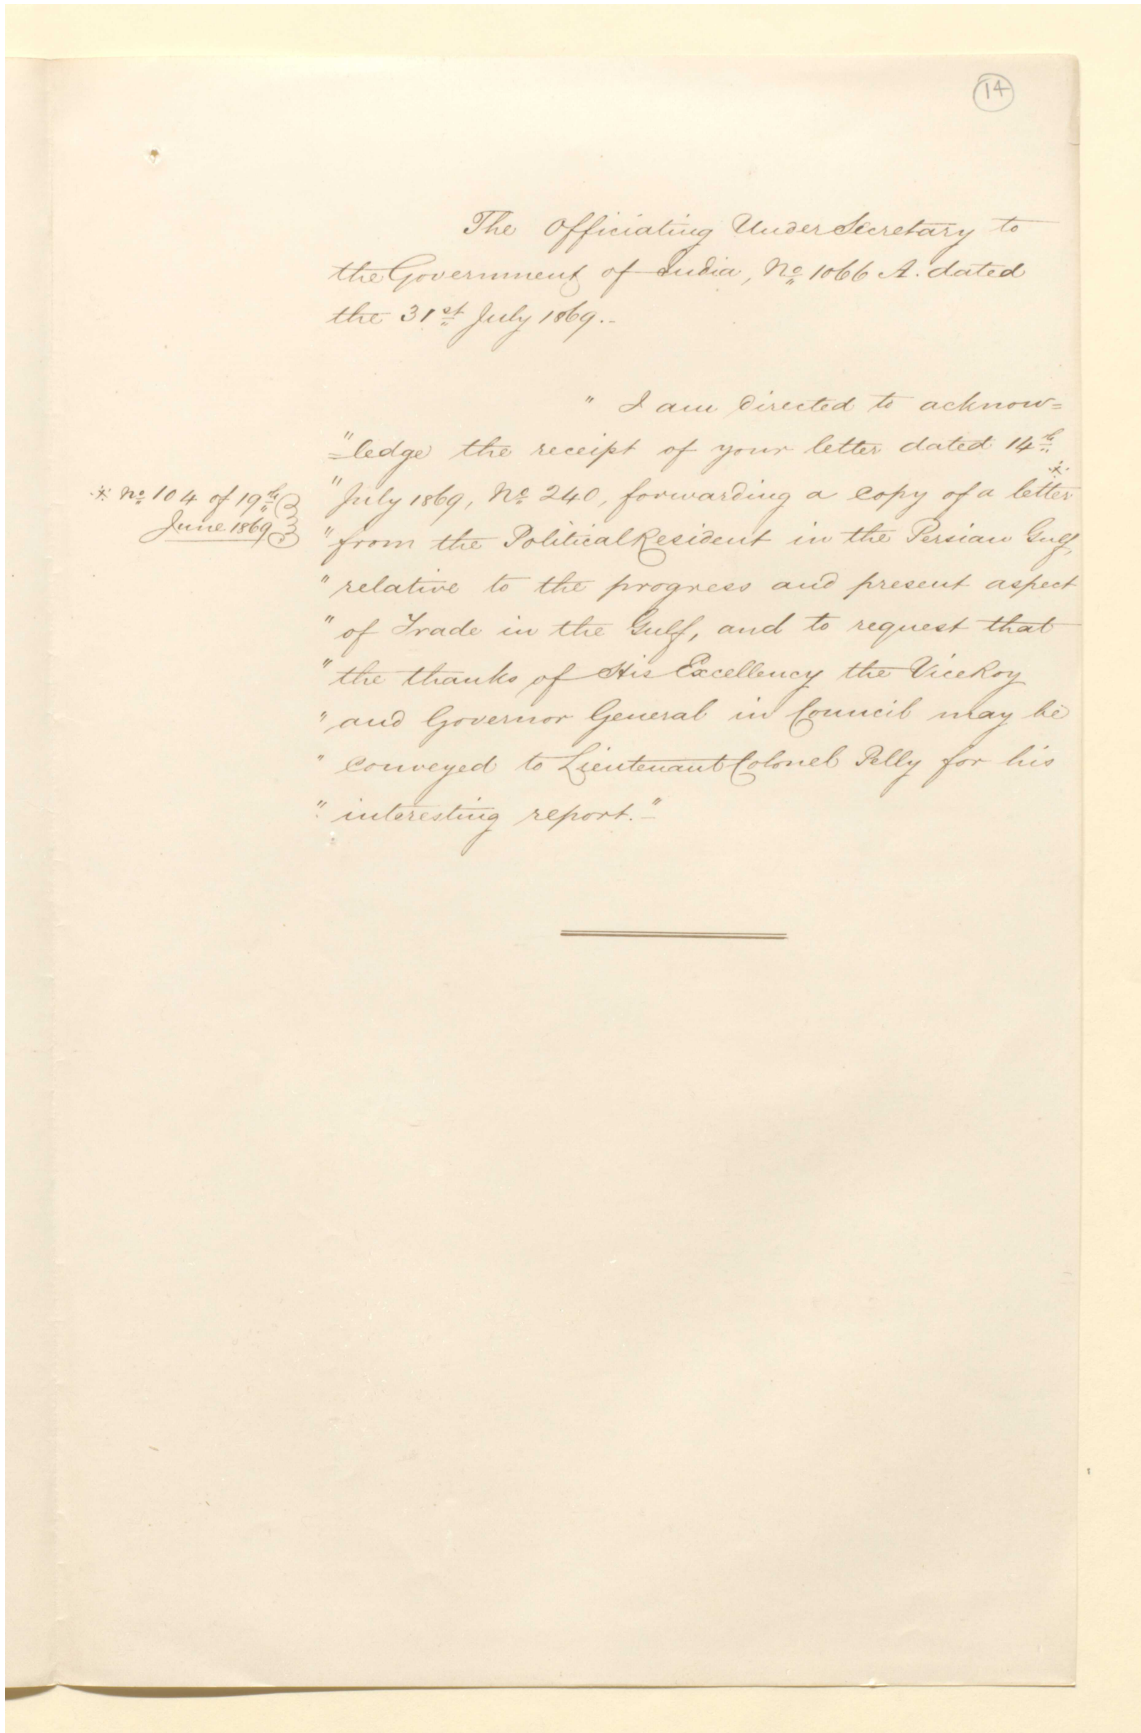 14
The Officiating Under Secretary to
the Government of India, No 1066 A. dated
the 31st July 1869.-
" I am directed to acknow=
"=ledge the receipt of your letter dated 14th
* No 104 of 19th
June 1869
"July 1869, No 240, forwarding a copy of a letter *
"from the Political Resident in the Persian Gulf,
"relative to the progress and present aspect
"of Trade in the Gulf, and to request that
"the thanks of His Excellency the ViceRoy
"and Governor General in Council may be
"conveyed to Lieutenant Colonel Pelly for his
"interesting report."-